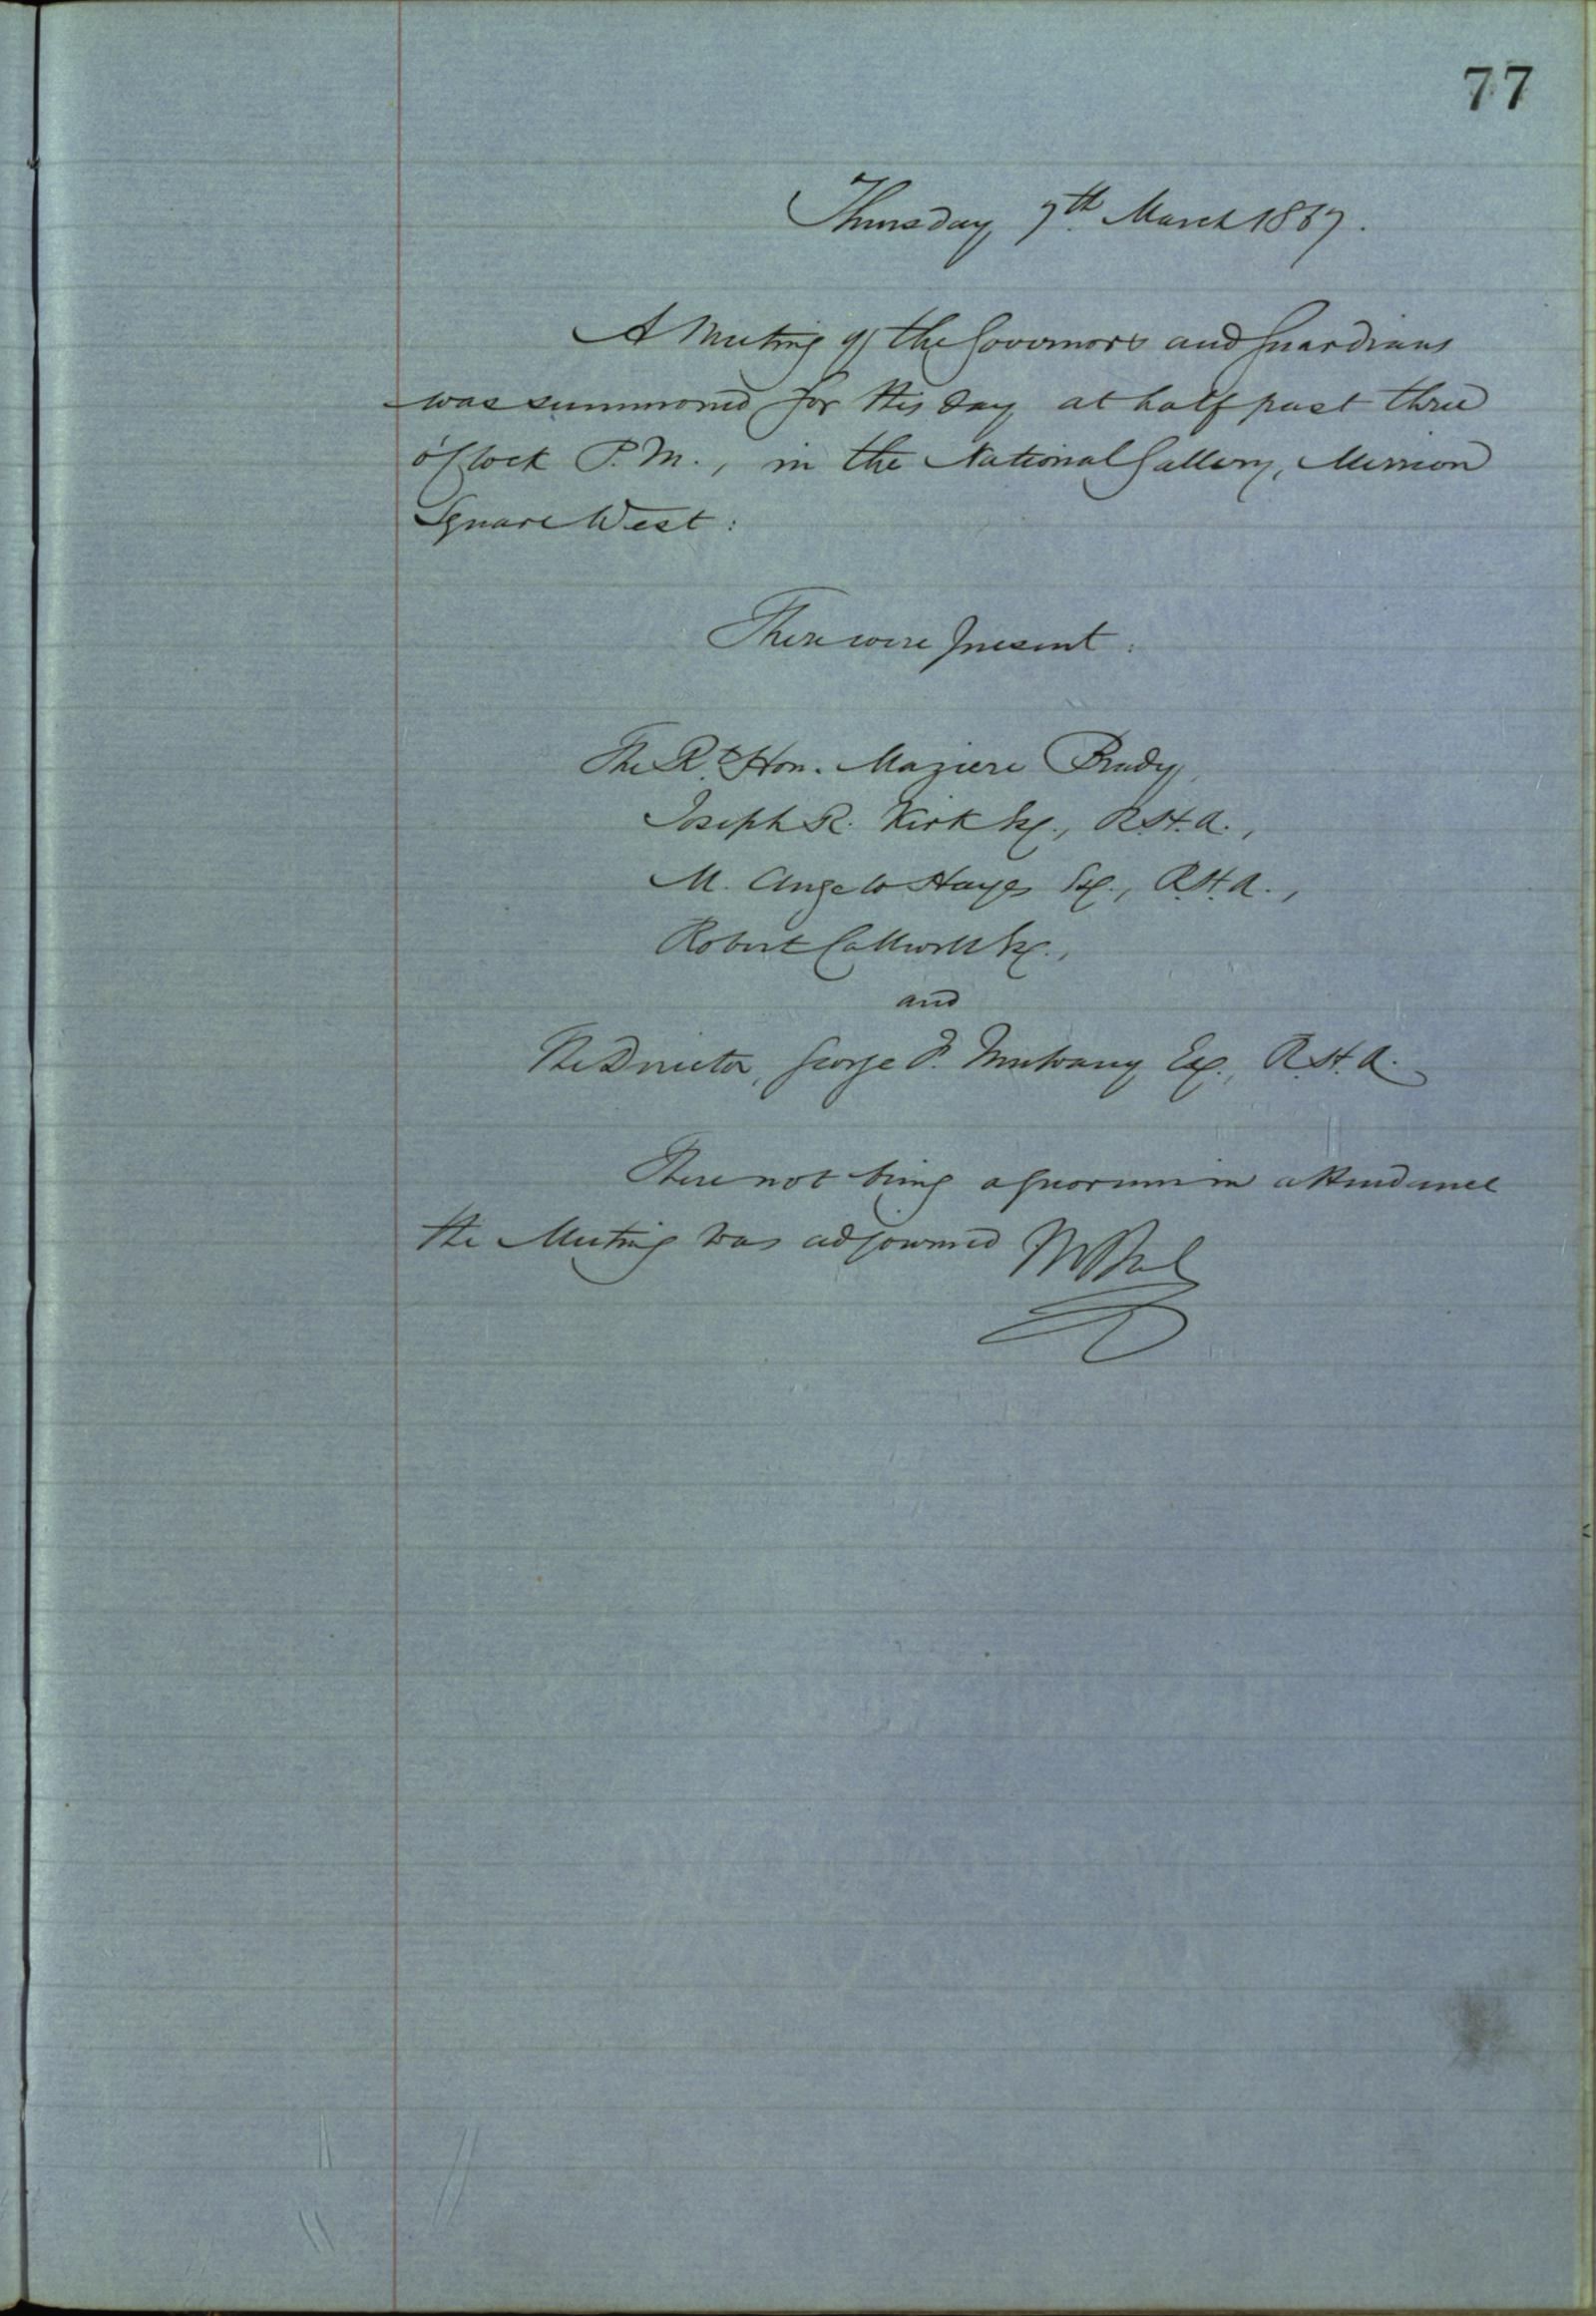 77
Thursday, 7th March 1867.
A Meeting of the Governors and Guardians
was summoned for this day at half past three
o'Clock P.M., in the National Gallery, Merrion
Square West:
There were present:
The Rt. Hon. Maziere Brady,
Joseph R. Kirk Esq., R.H.A.,
M. Angelo Hayes Esq., R.H.A.,
Robert Callwell Esq.,
and
The Director, George F. Mulvany Esq., R.H.A.
There not being a quorum in attendance
the Meeting was adjourned